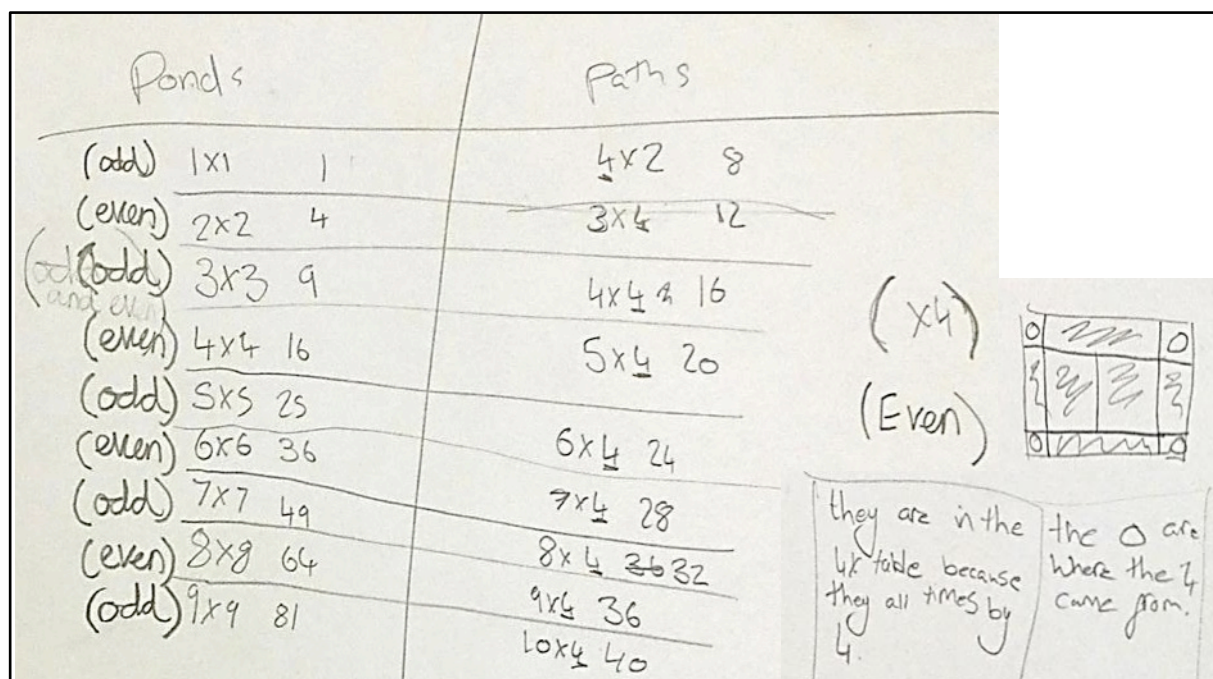 Ponds Paths
(odd) 1x1 1 4x2 8
(even) 2x2 4 3x4 12
(odd) 3x3 9 4x4 16
and even
(even) 4x4 16 5x4 20
(odd) 5x5 25
(even) 6x6 36 6x4 24
(odd) 7x7 49 7x4 28
(even) 8x8 64 8x4 36 32
(odd) 9x9 81 9x4 36
10x4 40
(x4)
(Even)
O O
O O
they are in the
4x table because
they all times by
4.
the O are
where the 4
came from.